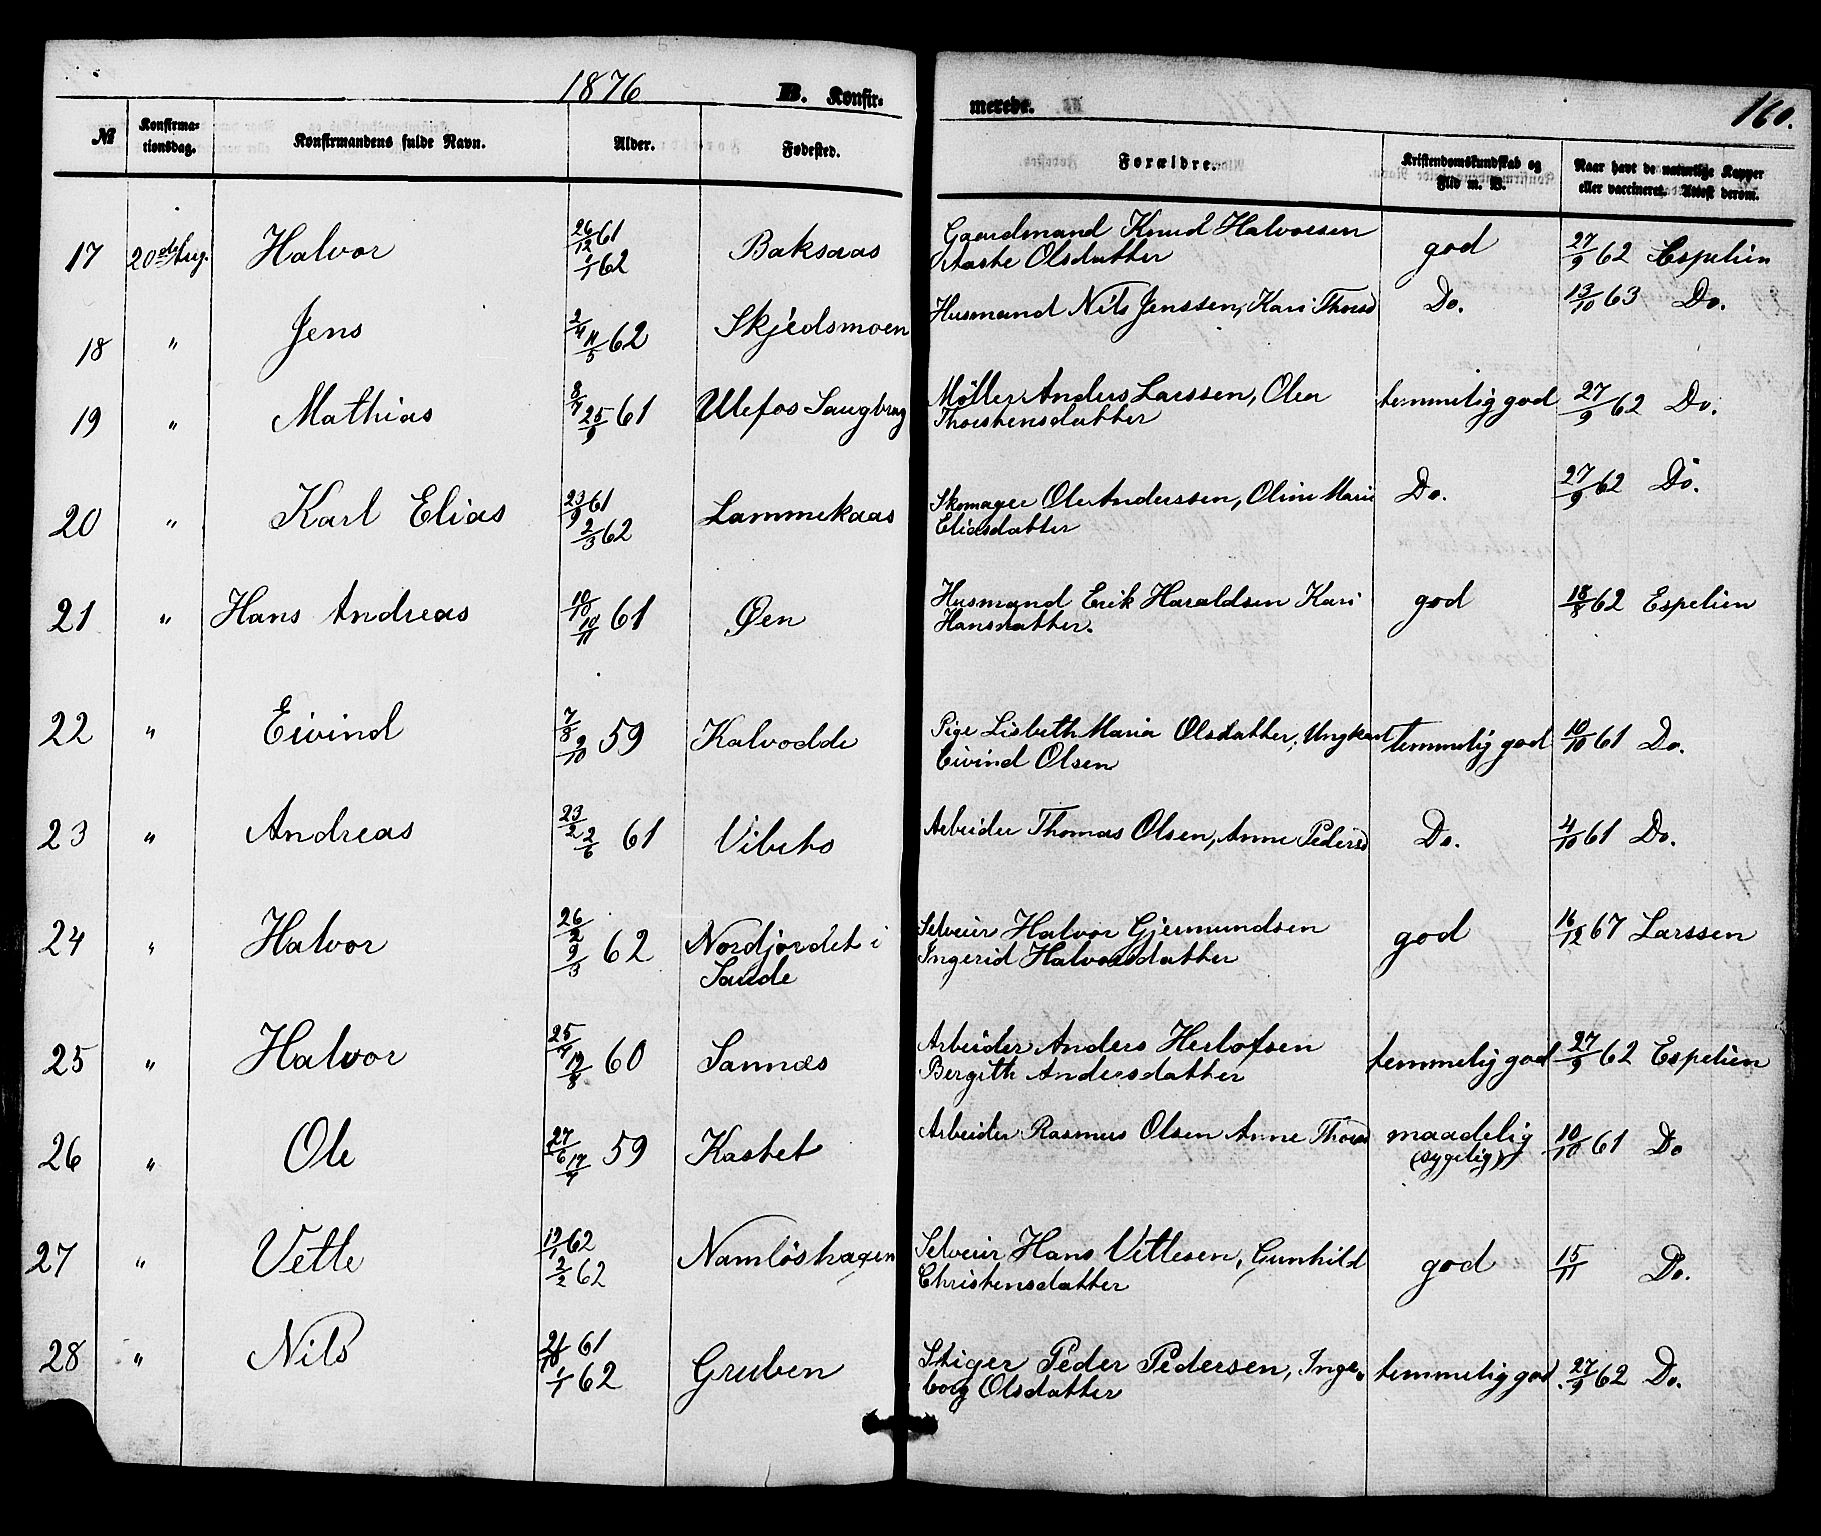 1876 B. Konfir- merede. 160.
№ Konfirma-tionsdag. Konfirmandens fulde Navn. Alder. Fødested. Forældre. Kristendomskundskab og Flid m. V. Naar havt de naturlige Kopper eller vaccineret. Attest derom.
17 20de Aug. Halvor 26/12 61 1/1 62 Baksaas Gaardmand Knud Halvorsen Aaste Olsdatter god 27/9 62 Espelien
18 " Jens 2/4 11/5 62 Skjedsmoen Husmand Nils Jenssen, Kari Thorsd Do. 13/10 63 Do.
19 " Mathias 8/7 25/9 61 Ulefos Saugbrug Møller Anders Larssen, Olea Thorstensdatter temmelig god 27/9 62 Do.
20 " Karl Elias 23/9 61 2/3 62 Lammekaas Skomager Ole Anderssen, Oline Marie Eliasdatter Do. 27/9 62 Do.
21 " Hans Andreas 10/10 10/11 61 Øen Husmand Erik Haraldsen Kari Hansdatter. god 18/8 62 Espelien
22 " Eivind 7/8 9/10 59 Kalvodde Pige Lisbeth Maria Olsdatter, Ungkarl Eivind Olsen temmelig god 10/10 61 Do.
23 " Andreas 23/2 2/6 61 Vibeto Arbeider Thomas Olsen, Anne Pedersd Do. 4/10 61 Do.
24 " Halvor 26/2 9/3 62 Nordjordet i Saude Selveier Halvor Gjermundsen Ingerid Halvorsdatter god 16/12 67 Larssen
25 " Halvor 25/4 12/8 60 Sannæs Arbeider Anders Herlofsen Bergith Andersdatter temmelig god 27/9 62 Espelien
26 " Ole 27/6 17/7 59 Kastet Arbeider Rasmus Olsen Anne Thorsd maadelig (sygelig) 10/10 61 Do
27 " Vetle 19/1 62 2/2 62 Namløshagen Selveier Hans Vetlesen, Gunhild Christensdatter god 15/11 Do.
28 " Nils 21/10 61 1/1 62 Gruben Stiger Peder Pedersen, Inge-borg Olsdatter temmelig god 27/9 62 Do.